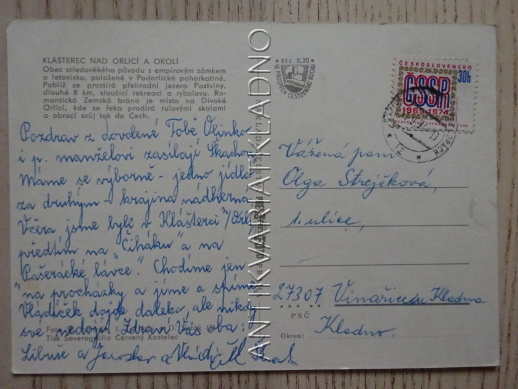 KLÁŠTEREC NAD ORLICÍ A OKOLÍ
Obec středověkého původu s empírovým zámkem
a letovisko, položené v Pedorlické pahorkatině.
Poblíž se prostírá přehradní jezero Pastviny,
dlouhé 8 km, sloužící rekreaci a rybolovu. Ro-
mantická Zemská brána je místo na Divoké
Orlici, kde se řeka prodírá rulovými skalami
a obrací svůj tok do Čech.
Pozdrav z dovolené Tobě Olinko
i p. manželovi zasílají
Máme se výborně - jedno jídlo
za druhým - krajina nádherná
Včera jsme byli v Klášterci n/Orl.
předtím na "Čiháku" a na
"Pašerácké lávce". Chodíme jen
na procházky a jíme a spíme
Vládíček dojde daleko, ale nikdy
své nedojí. Zdraví Vás oba:
Libuše a Jaroslav a
Tisk Severografia Červený Kostelec
Kčs 0,20
ANTIKVARIAT KLADNO
ČESKOSLOVENSKO
30h
ČSSR
1969 1974
Vážená paní
Olga Strejčková,
1. ulice,
27307 Vinařice u Kladna
PSČ
Okres: Kladno.